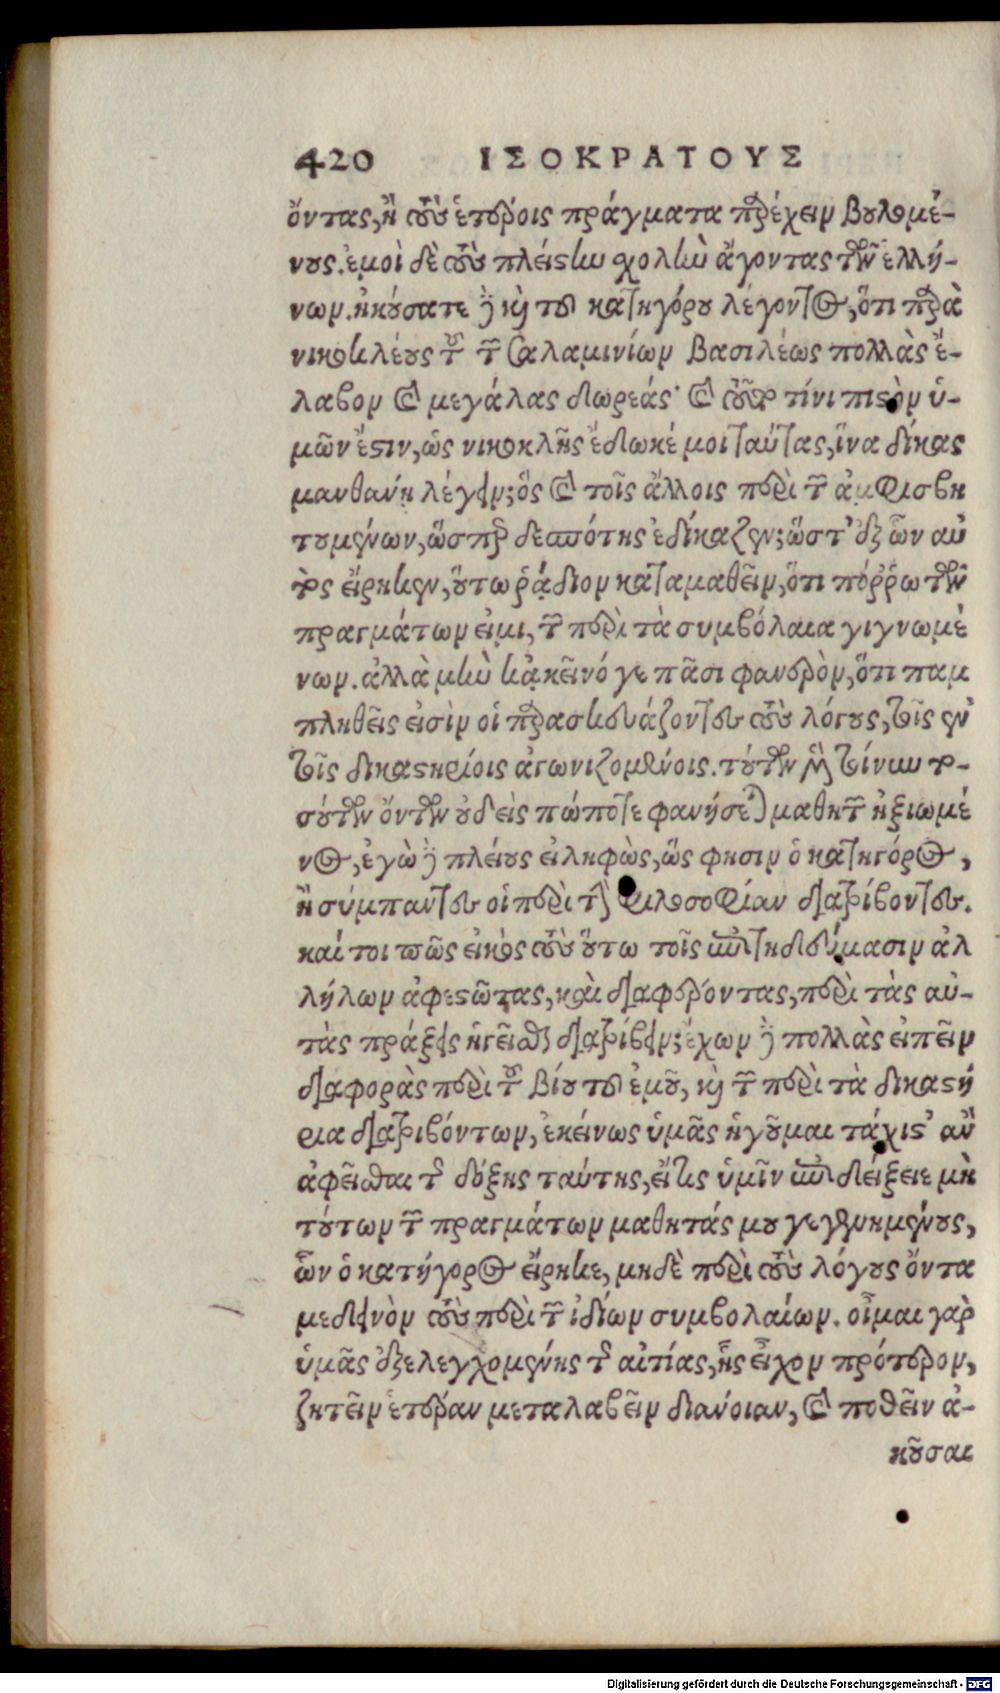 420 ΙΣΟΚΡΑΤΟΥΣ
ὄντας, ἢ τοὺς ἑτέροις πράγματα παρέχειν βουλομέ-
νους. ἐμοὶ δὲ τοὺς πλείστην σχολὴν ἄγοντας τῶν ἑλλή-
νων. ἠκούσατε δὲ καὶ τοῦ κατηγόρου λέγοντος, ὅτι παρὰ
νικοκλέους τοῦ τῶν Σαλαμινίων βασιλέως πολλὰς ἔ-
λαβον καὶ μεγάλας δωρεάς· καὶ τίνι πιστὸν ὑ-
μῶν ἐστιν, ὡς νικοκλῆς ἔδωκέ μοι ταύτας, ἵνα δίκας
μανθάνῃ λέγειν; ὃς καὶ τοῖς ἄλλοις περὶ τῶν ἀμφισβη
τουμένων, ὥσπερ δεσπότης ἐδίκαζεν; ὥστ' ἐξ ὧν αὐ
τὸς εἴρηκεν, οὕτω ῥᾴδιον καταμαθεῖν, ὅτι πόῤῥω τῶν
πραγμάτων εἰμι, τῶν περὶ τὰ συμβόλαια γιγνωμέ
νων. ἀλλὰ μὴν κᾀκεῖνό γε πᾶσι φανερὸν, ὅτι παμ
πληθεῖς εἰσὶν οἱ παρασκευάζοντες τοὺς λόγους, τοῖς ἐν
τοῖς δικαστηρίοις ἀγωνιζομένοις. τούτων μὲν τοίνυν το-
σούτων ὄντων οὐδεὶς πώποτε φανήσεται μαθητῶν ἠξιωμέ
νος, ἐγὼ δὲ πλείους εἰληφὼς, ὥς φησιν ὁ κατήγορος,
ἢ σύμπαντες οἱ περὶ τὴν φιλοσοφίαν διατρίβοντες.
καί τοι πῶς εἰκὸς τοὺς οὕτω τοῖς ἐπιτηδεύμασιν ἀλ
λήλων ἀφεστῶτας, καὶ διαφέροντας, περὶ τὰς αὐ-
τὰς πράξεις ἡγεῖσθαι διατρίβειν; ἔχων δὲ πολλὰς εἰπεῖν
διαφορὰς περὶ τοῦ βίου τοῦ ἐμοῦ, καὶ τῶν περὶ τὰ δικαστή
ρια διατριβόντων, ἐκείνως ὑμᾶς ἡγοῦμαι τάχιστ' ἂν
ἀφεῖσθαι τῆς δόξης ταύτης, εἴ τις ὑμῖν ἐπιδείξειε μὴ
τούτων τῶν πραγμάτων μαθητάς μου γεγενημένους,
ὧν ὁ κατήγορος εἴρηκε, μηδὲ περὶ τοὺς λόγους ὄντα
με δεινὸν τοὺς περὶ τῶν ἰδίων συμβολαίων. οἶμαι γὰρ
ὑμᾶς ἐξελεγχομένης τῆς αἰτίας, ἧς εἶχον πρότερον,
ζητεῖν ἑτέραν μεταλαβεῖν διάνοιαν, καὶ ποθεῖν ἀ-
κοῦσαι
Digitalisierung gefördert durch die Deutsche Forschungsgemeinschaft - DFG